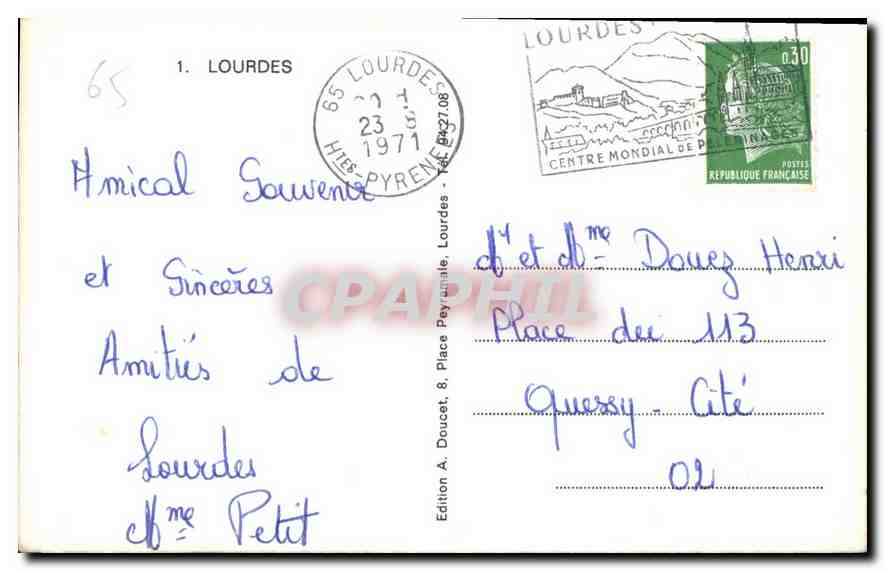 65
1. LOURDES
65 LOURDES
23 8
1971
HTES-PYRENEES
LOURDES
CENTRE MONDIAL DE PELERINAGES
0,30
POSTES
REPUBLIQUE FRANÇAISE
Amical Souvenir
et Sincères
Amitiés de
Lourdes
Mme Petit
Edition A. Doucet, 8, Place Peyramale, Lourdes - Tél. 94.27.08
Mr et Mme Douez Henri
Place du 113
Quessy - Cité
02
CPAPHIL